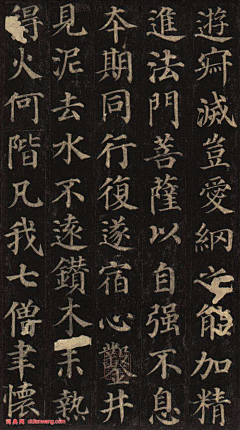 遊寂滅豈愛網之能加精
進法門菩薩以自强不息
本期同行復遂宿心鑿井
見泥去水不遠鑽木未熱
得火何階凡我七僧聿懷
cidianwang.com